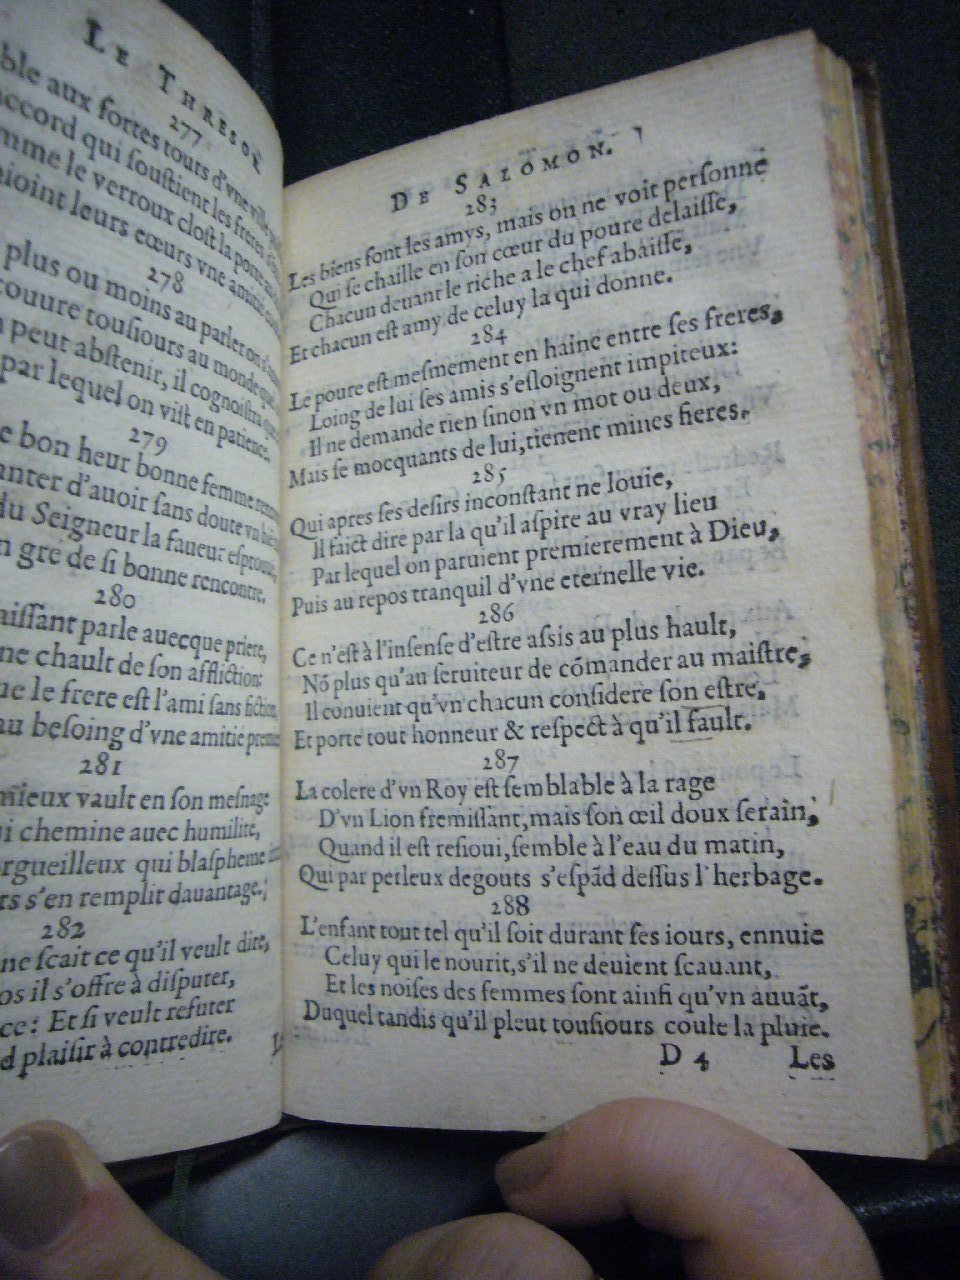 LE THRESOR
277
aux fortes tours d'vne ville
accord qui soustient les freres
le verroux clost la porte
leurs cœurs vne amitié
278
plus ou moins au parler on
tousiours au monde que
peut abstenir, il cognoistra
par lequel on vist en patience.
279
bon heur bonne femme
d'auoir sans doute vn
du Seigneur la faueur
gre de si bonne rencontre.
280
parle auecque priere,
chault de son affliction:
le frere est l'ami sans fiction,
au besoing d'vne amitié
281
mieux vault en son mesnage
chemine auec humilité,
qui blaspheme
s'en remplit dauantage.
282
ne scait ce qu'il veult dire,
il s'offre à disputer,
Et si veult refuter
plaisir à contredire.
DE SALOMON.
283
Les biens font les amys, mais on ne voit personne
Qui se chaille en son cœur du poure delaissé,
Chacun deuant le riche a le chef abaissé,
Et chacun est amy de celuy la qui donne.
284
Le poure est mesmement en haine entre ses freres,
Loing de lui ses amis s'esloignent impiteux:
Il ne demande rien sinon vn mot ou deux,
Mais se mocquants de lui, tienent mines fieres.
285
Qui apres ses desirs inconstant ne louie,
Il faict dire par là qu'il aspire au vray lieu
Par lequel on paruient premierement à Dieu,
Puis au repos tranquil d'vne eternelle vie.
286
Ce n'est à l'insensé d'estre assis au plus hault,
Nō plus qu'au seruiteur de cōmander au maistre,
Il conuient qu'vn chacun considere son estre,
Et porte tout honneur & respect à qu'il fault.
287
La colere d'vn Roy est semblable à la rage
D'vn Lion fremissant, mais son œil doux serain,
Quand il est resioui, semble à l'eau du matin,
Qui par perleux degouts s'espād dessus l'herbage.
288
L'enfant tout tel qu'il soit durant ses iours, ennuie
Celuy qui le nourit, s'il ne deuient scauant,
Et les noises des femmes sont ainsi qu'vn auuāt,
Duquel tandis qu'il pleut tousiours coule la pluie.
D 4 Les